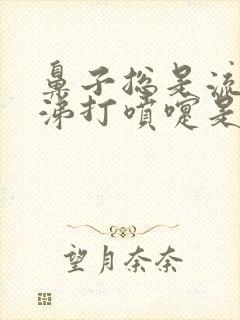 鼻子总是流
涕打喷嚏是
望月奈奈